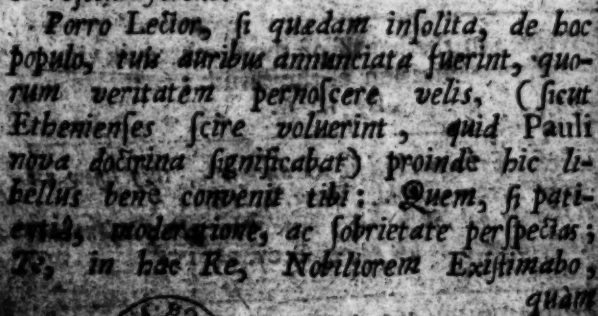 Porro Lector, ſi quædam inſolita, de hoc
populo, tuis auribus annunciata fuerint, quo-
rum veritatém pernoſcere velis, (ſicut
Ethenienſes ſcire voluerint, quid Pauli
nova doctrina ſignificabat) proinde hic li-
bellus bene convenit tibi: Quem, ſi pati-
entiâ, moderatione, ac ſobrietate perſpectas;
Te, in hac Re, Nobiliorem Exiſtimabo,
quàm